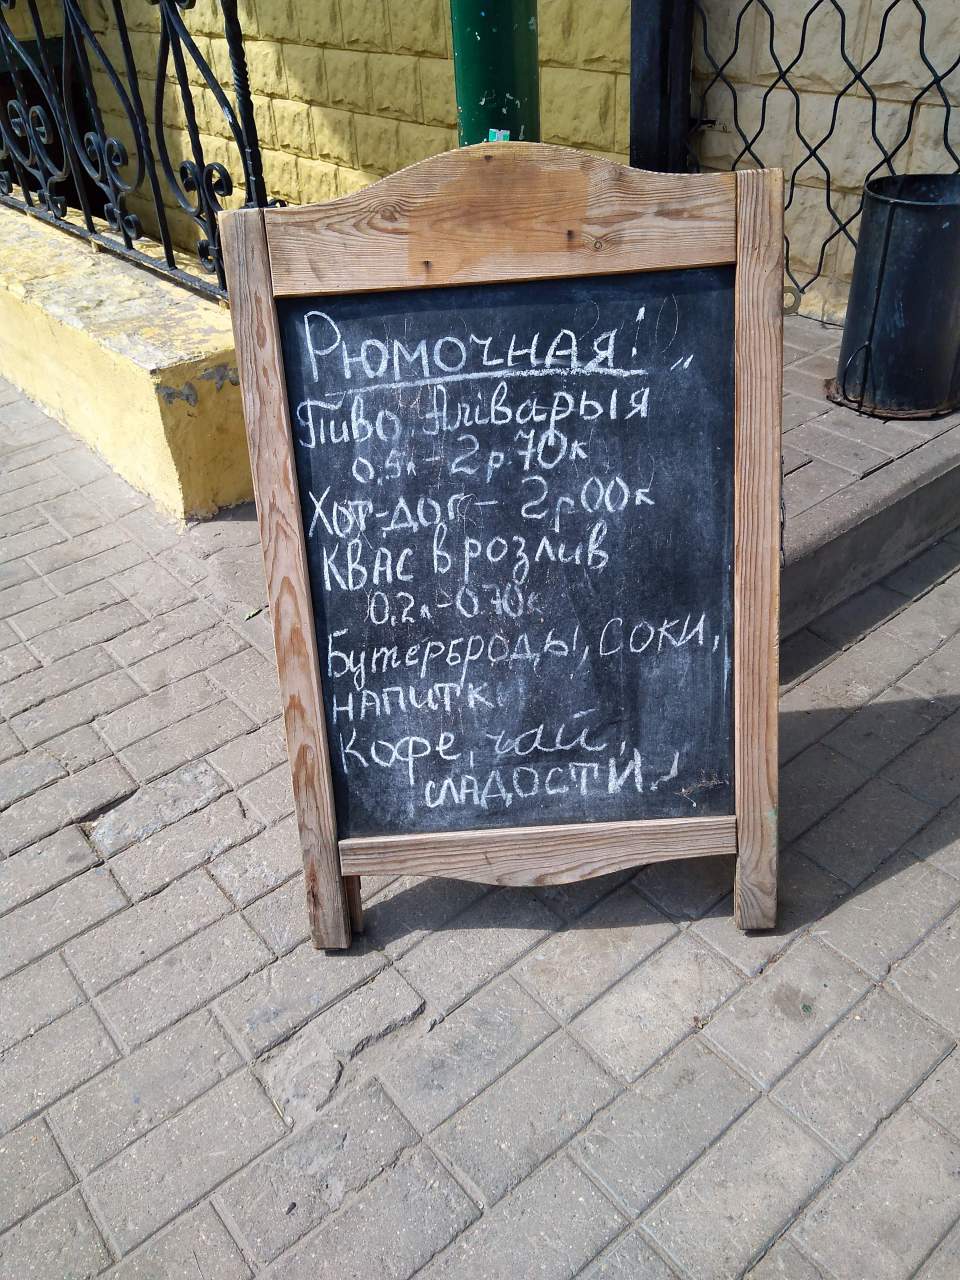 Рюмочная!
Пиво Аліварыя
0,5л - 2р.70к
Хот-дог - 2р00к
Квас в розлив
0,2л - 0.70к
Бутерброды, соки,
напитки
Кофе, чай,
сладости!